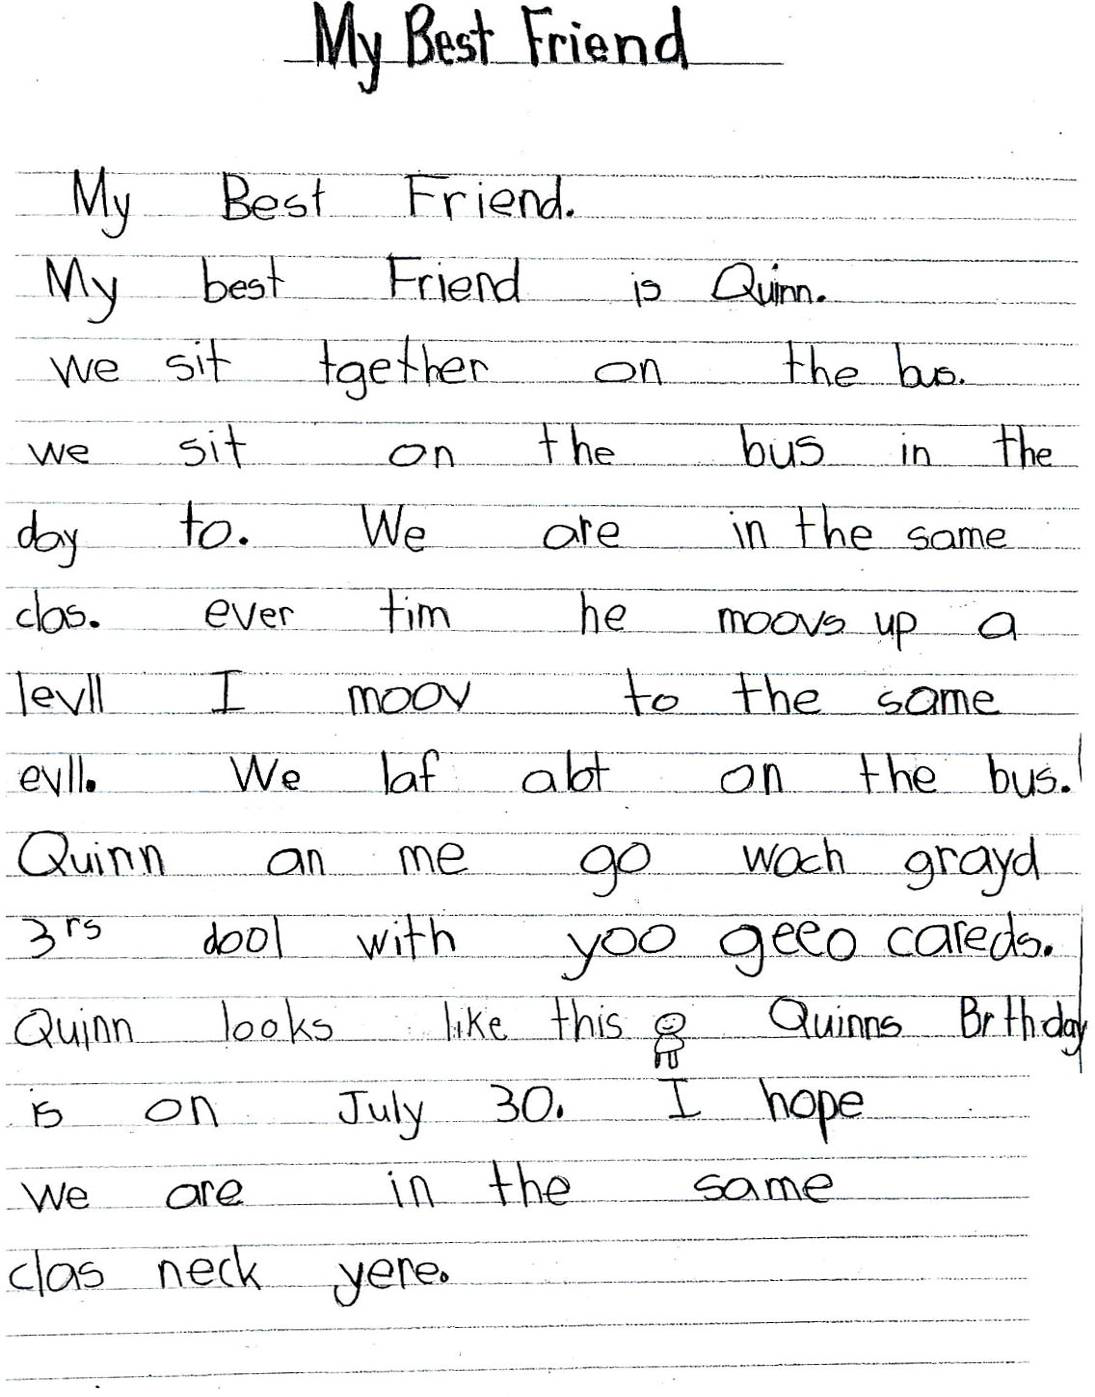 My Best Friend
My Best Friend.
My best Friend is Quinn.
we sit tgether on the bus.
we sit on the bus in the
day to. We are in the same
clas. ever tim he moovs up a
levll I moov to the same
evll. We laf abt on the bus.
Quinn an me go wach grayd
3rs dool with yoo geeo careds.
Quinn looks like this Quinns Brthday
is on July 30. I hope
we are in the same
clas neck yere.